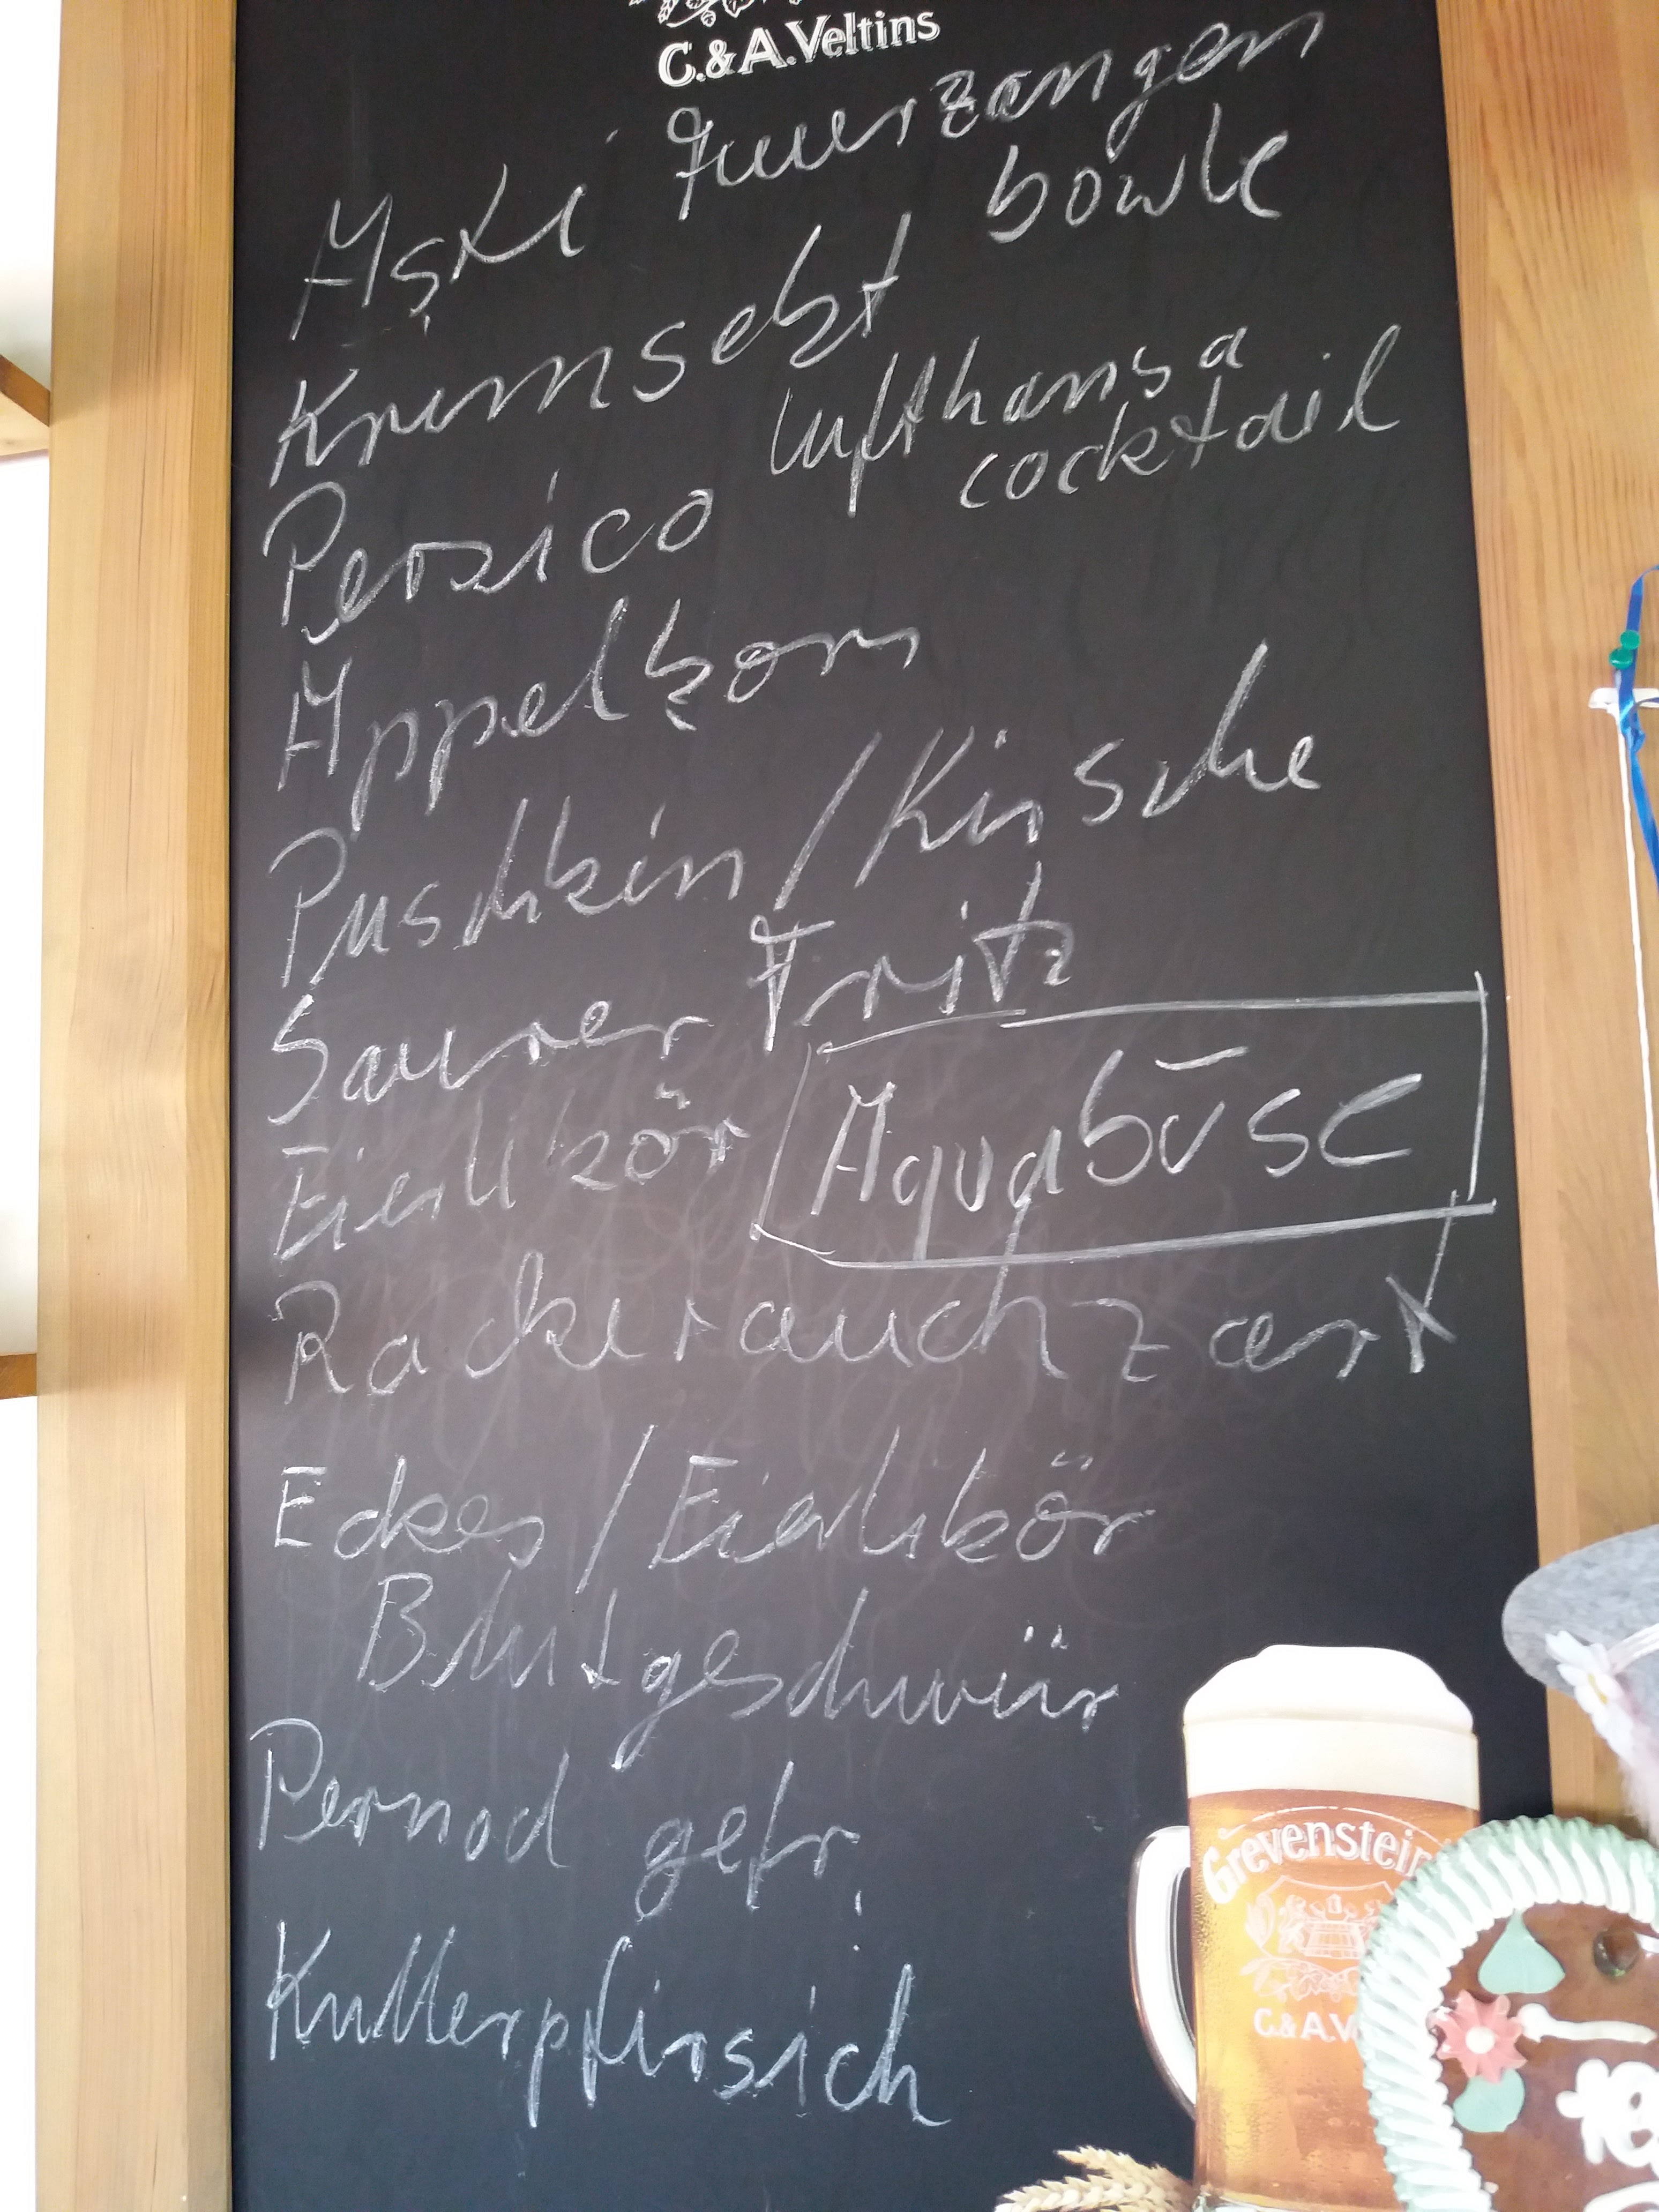 C.&A.Veltins
Feuerzangen
bowle
Aski
Krimsekt
Lufthansa
cocktail
Persico
Appelkorn
Puschkin/Kirsche
Saurer Fritz
Eierlikör
Aquabüse
Rackerauchzart
Eckes/Eierlikör
Blutgeschwür
Pernod gefr.
Kullerpfirsich
Grevenstein
C.&A.V